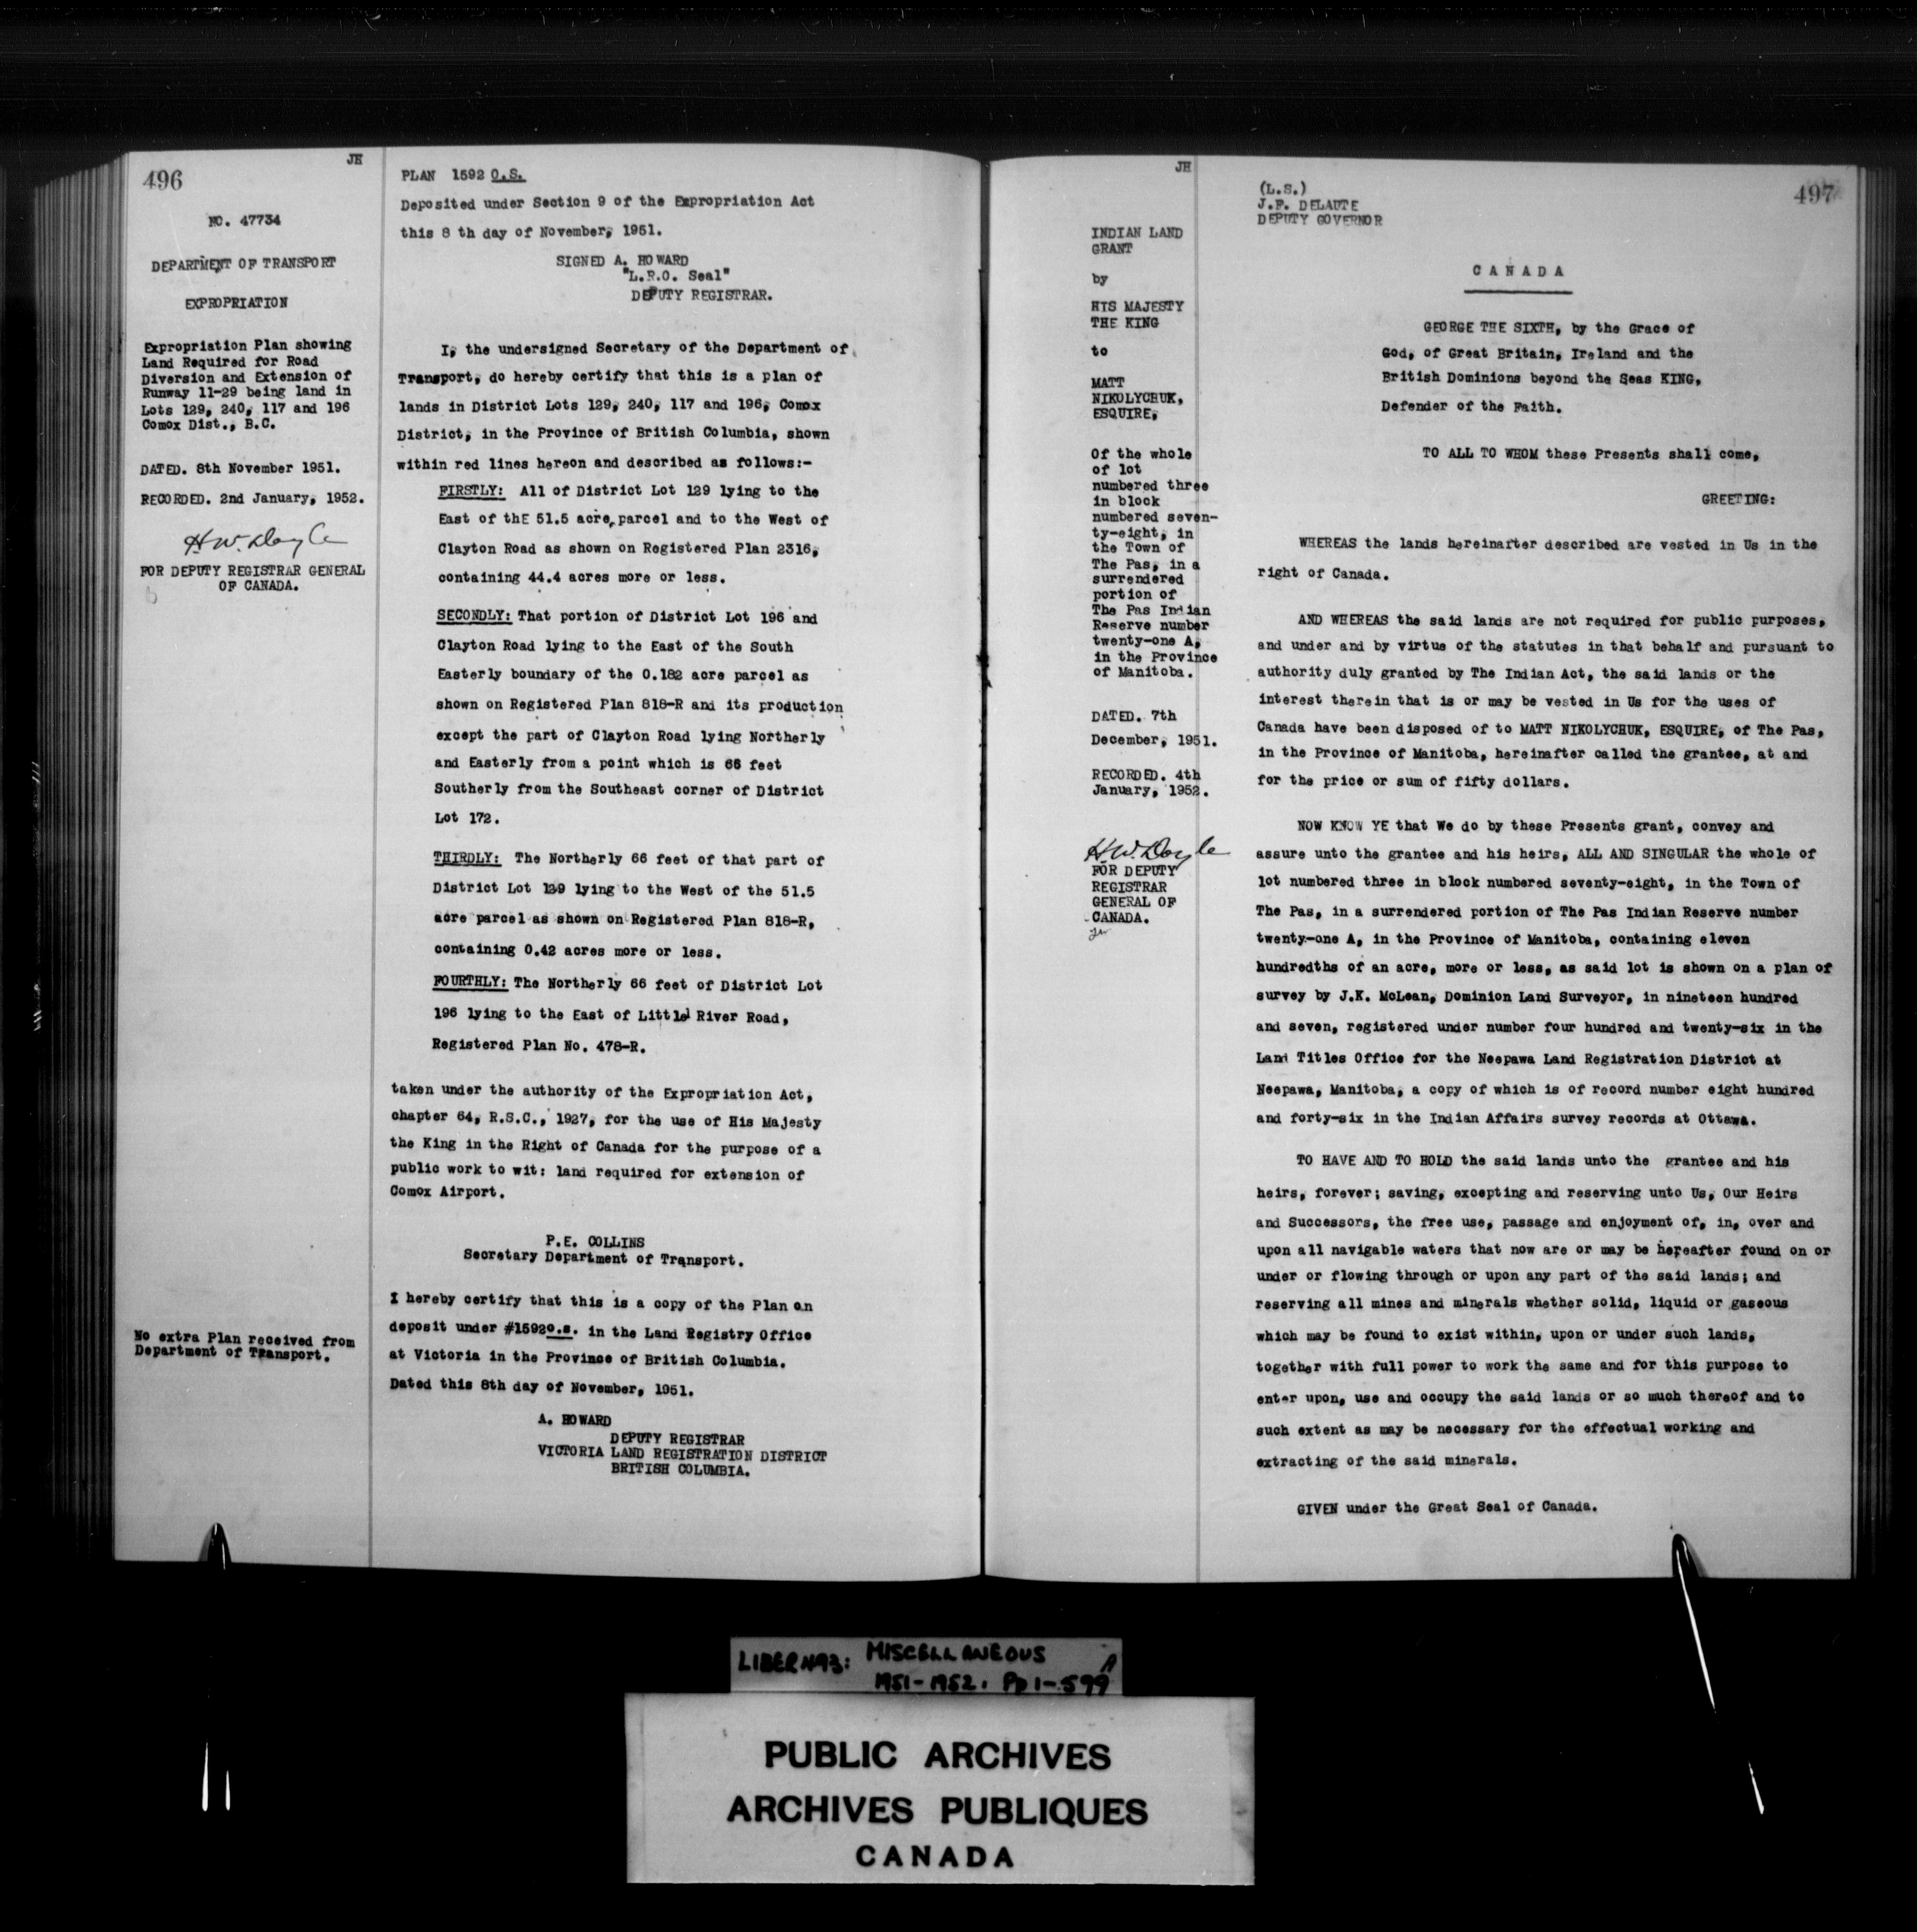 496
JH
NO. 47734
DEPARTMENT OF TRANSPORT
EXPROPRIATION
Expropriation Plan showing
Land Required for Road
Diversion and Extension of
Runway 11-29 being land in
Lots 129, 240, 117 and 196
Comox Dist., B.C.
DATED. 8th November 1951.
RECORDED. 2nd January, 1952.
H.W. Doyle
FOR DEPUTY REGISTRAR GENERAL
OF CANADA.
No extra Plan received from
Department of Transport.
PLAN 1592 O.S.
Deposited under Section 9 of the Expropriation Act
this 8 th day of November, 1951.
SIGNED A. HOWARD
"L.R.O. Seal"
DEPUTY REGISTRAR.
I, the undersigned Secretary of the Department of
Transport, do hereby certify that this is a plan of
lands in District Lots 129, 240, 117 and 196, Comox
District, in the Province of British Columbia, shown
within red lines hereon and described as follows:-
FIRSTLY: All of District Lot 129 lying to the
East of thE 51.5 acre parcel and to the West of
Clayton Road as shown on Registered Plan 2316,
containing 44.4 acres more or less.
SECONDLY: That portion of District Lot 196 and
Clayton Road lying to the East of the South
Easterly boundary of the 0.182 acre parcel as
shown on Registered Plan 818-R and its production
except the part of Clayton Road lying Northerly
and Easterly from a point which is 66 feet
Southerly from the Southeast corner of District
Lot 172.
THIRDLY: The Northerly 66 feet of that part of
District Lot 129 lying to the West of the 51.5
acre parcel as shown on Registered Plan 818-R,
containing 0.42 acres more or less.
FOURTHLY: The Northerly 66 feet of District Lot
196 lying to the East of Little River Road,
Registered Plan No. 478-R.
taken under the authority of the Expropriation Act,
chapter 64, R.S.C., 1927, for the use of His Majesty
the King in the Right of Canada for the purpose of a
public work to wit: land required for extension of
Comox Airport.
P.E. COLLINS
Secretary Department of Transport.
I hereby certify that this is a copy of the Plan on
deposit under #1592o.s. in the Land Registry Office
at Victoria in the Province of British Columbia.
Dated this 8th day of November, 1951.
A. HOWARD
DEPUTY REGISTRAR
VICTORIA LAND REGISTRATION DISTRICT
BRITISH COLUMBIA.
JH
497
INDIAN LAND
GRANT
by
HIS MAJESTY
THE KING
to
MATT
NIKOLYCHUK,
ESQUIRE,
Of the whole
of lot
numbered three
in block
numbered seven-
ty-eight, in
the Town of
The Pas, in a
surrendered
portion of
The Pas Indian
Reserve number
twenty-one A,
in the Province
of Manitoba.
DATED. 7th
December, 1951.
RECORDED. 4th
January, 1952.
H.W. Doyle
FOR DEPUTY
REGISTRAR
GENERAL OF
CANADA.
(L.S.)
J.F. DELAUTE
DEPUTY GOVERNOR
CANADA
GEORGE THE SIXTH, by the Grace of
God, of Great Britain, Ireland and the
British Dominions beyond the Seas KING,
Defender of the Faith.
TO ALL TO WHOM these Presents shall come,
GREETING:
WHEREAS the lands hereinafter described are vested in Us in the
right of Canada.
AND WHEREAS the said lands are not required for public purposes,
and under and by virtue of the statutes in that behalf and pursuant to
authority duly granted by The Indian Act, the said lands or the
interest therein that is or may be vested in Us for the uses of
Canada have been disposed of to MATT NIKOLYCHUK, ESQUIRE, of The Pas,
in the Province of Manitoba, hereinafter called the grantee, at and
for the price or sum of fifty dollars.
NOW KNOW YE that We do by these Presents grant, convey and
assure unto the grantee and his heirs, ALL AND SINGULAR the whole of
lot numbered three in block numbered seventy-eight, in the Town of
The Pas, in a surrendered portion of The Pas Indian Reserve number
twenty-one A, in the Province of Manitoba, containing eleven
hundredths of an acre, more or less, as said lot is shown on a plan of
survey by J.K. McLean, Dominion Land Surveyor, in nineteen hundred
and seven, registered under number four hundred and twenty-six in the
Land Titles Office for the Neepawa Land Registration District at
Neepawa, Manitoba, a copy of which is of record number eight hundred
and forty-six in the Indian Affairs survey records at Ottawa.
TO HAVE AND TO HOLD the said lands unto the grantee and his
heirs, forever; saving, excepting and reserving unto Us, Our Heirs
and Successors, the free use, passage and enjoyment of, in, over and
upon all navigable waters that now are or may be hereafter found on or
under or flowing through or upon any part of the said lands; and
reserving all mines and minerals whether solid, liquid or gaseous
which may be found to exist within, upon or under such lands,
together with full power to work the same and for this purpose to
enter upon, use and occupy the said lands or so much thereof and to
such extent as may be necessary for the effectual working and
extracting of the said minerals.
GIVEN under the Great Seal of Canada.
LIBER 493: MISCELLANEOUS A
1951-1952. Pp 1-599
PUBLIC ARCHIVES
ARCHIVES PUBLIQUES
CANADA